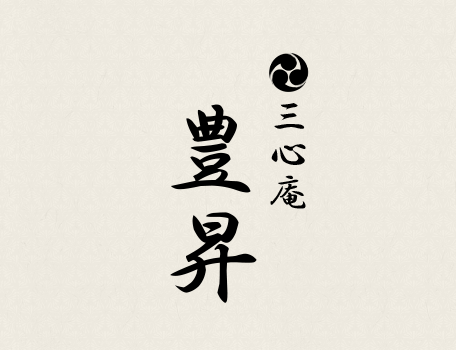 三心庵
豊昇